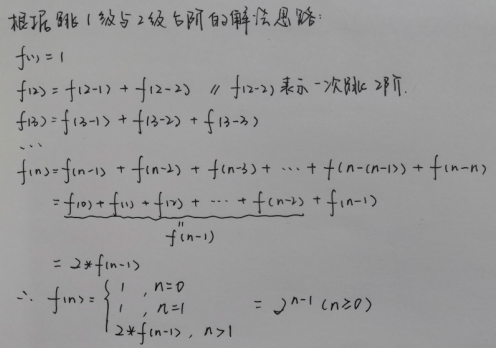 根据跳1级与2级台阶的解法思路:
f(1) = 1
f(2) = f(2-1) + f(2-2) // f(2-2) 表示一次跳2阶.
f(3) = f(3-1) + f(3-2) + f(3-3)
...
f(n) = f(n-1) + f(n-2) + f(n-3) + ... + f(n-(n-1)) + f(n-n)
= f(0) + f(1) + f(2) + ... + f(n-2) + f(n-1)
"
f(n-1)
= 2*f(n-1)
∴ f(n) = { 1 , n=0
1 , n=1
2*f(n-1) , n>1
= 2^{n-1} (n≥0)